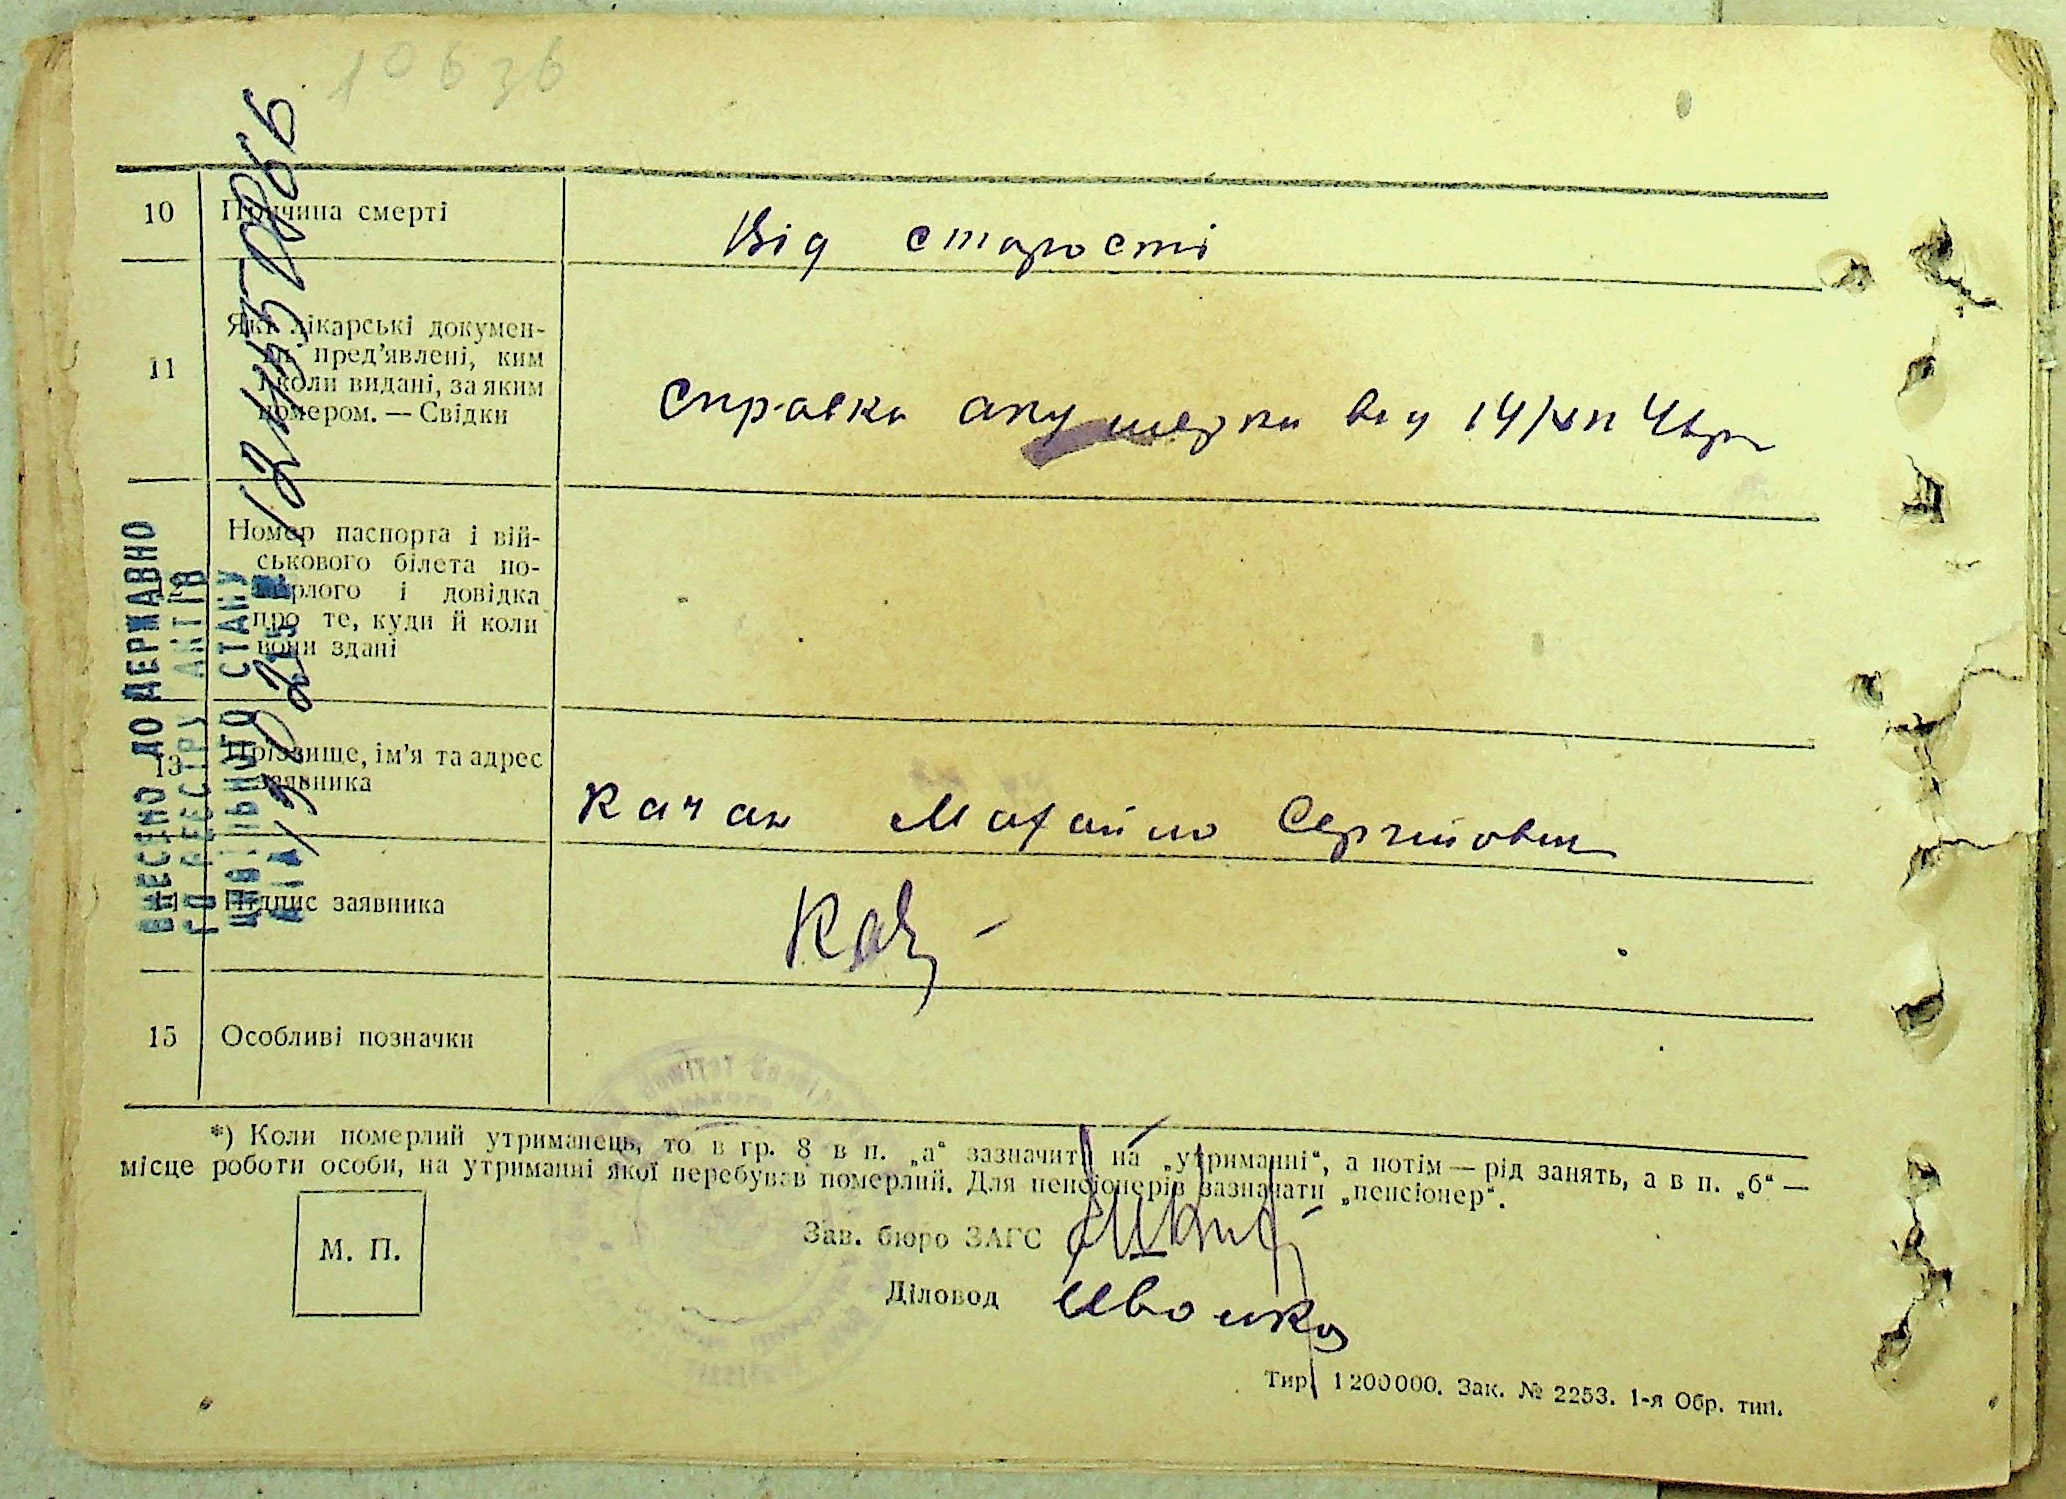 10636
10 Причина смерті Від старості
11 Які лікарські докумен-
ти пред'явлені, ким
і коли видані, за яким
номером. — Свідки
Справка акушерки від 14/XII
Номер паспорта і вій-
ськового білета по-
мерлого і довідка
про те, куди й коли
вони здані
13 Прізвище, ім'я та адрес
заявника
Качан Михайло Сергійович
14 Підпис заявника Кач
15 Особливі позначки
*) Коли померлий утриманець, то в гр. 8 в п. „а“ зазначити на „утриманні“, а потім — рід занять, а в п. „б“ —
місце роботи особи, на утриманні якої перебував померлий. Для пенсіонерів зазначати „пенсіонер“.
М. П.
Зав. бюро ЗАГС
Діловод
Тир. 1 200 000. Зак. № 2253. 1-я Обр. тип.
ВНЕСЕНО ДО ДЕРЖАВНО
ГО РЕЄСТРУ АКТІВ
ЦИВІЛЬНОГО СТАНУ